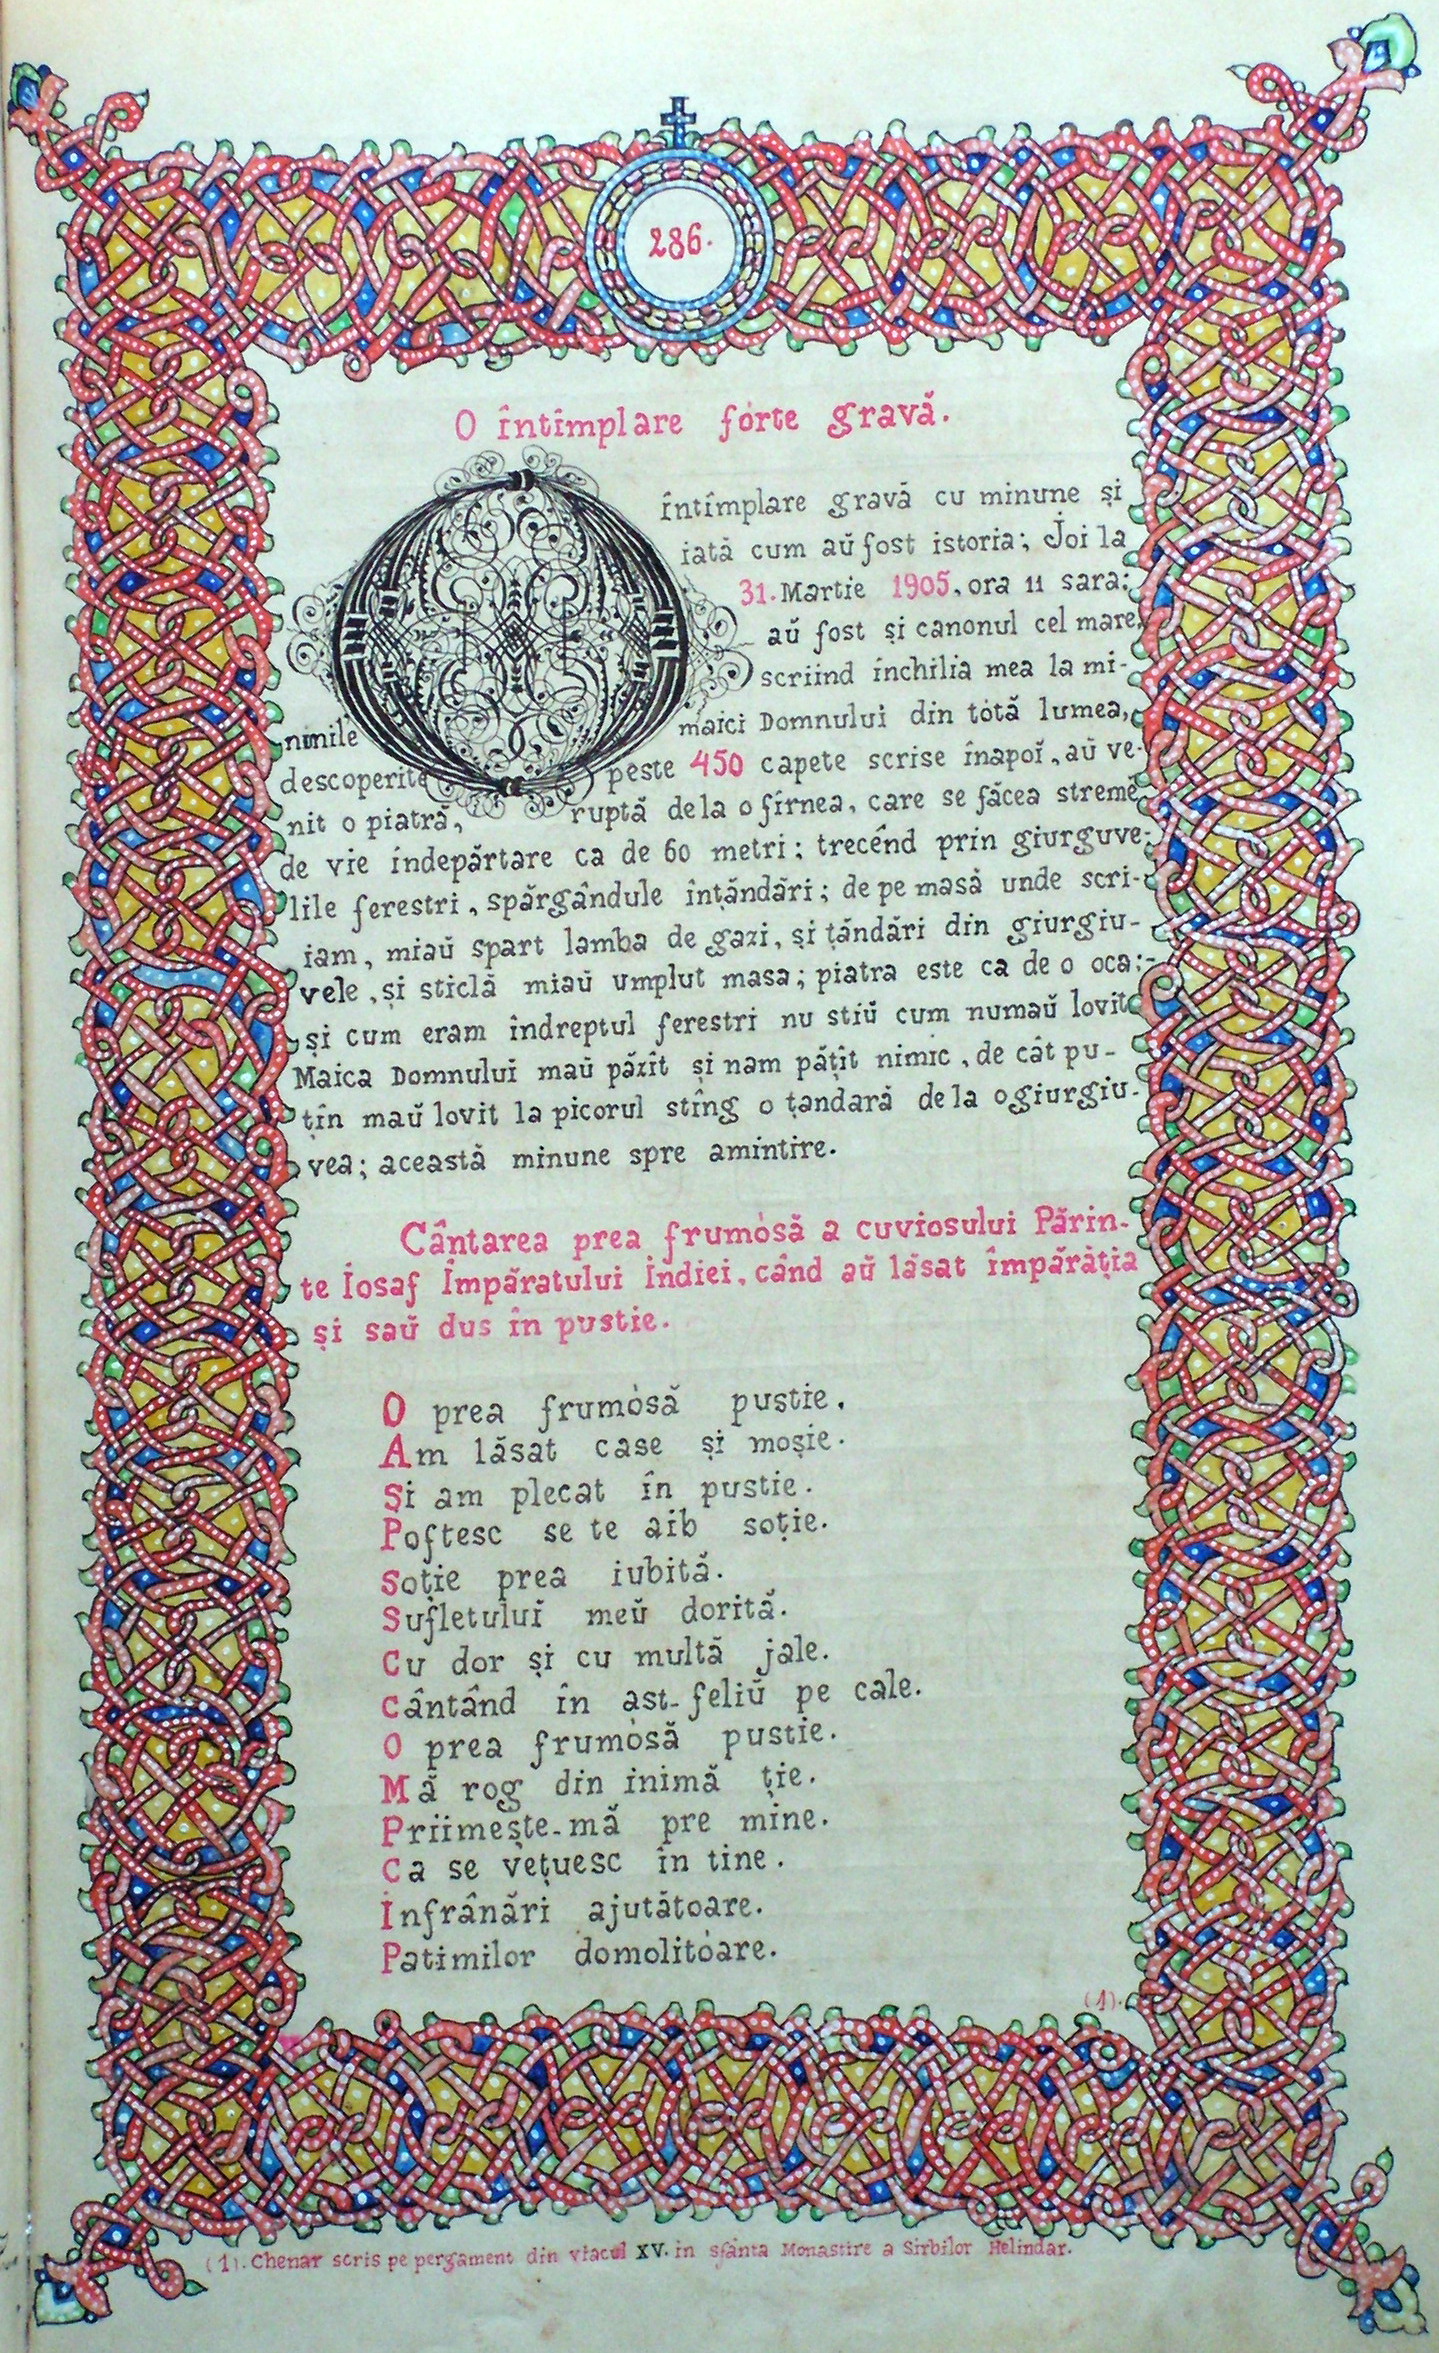 286.
O întîmplare fórte gravă.
întîmplare gravă cu minune și
iată cum aŭ fost istoria; Joi la
31. Martie 1905, ora 11 sara;
aŭ fost și canonul cel mare,
scriind inchilia mea la mi-
nunile maici Domnului din tótă lumea,
descoperite peste 450 capete scrise înapoĭ, aŭ ve-
nit o piatră, ruptă dela o fîrnea, care se făcea stremĕ
de vie îndepărtare ca de 60 metri; trecênd prin giurguve-
lile ferestri, spărgândule înțăndări; de pe masă unde scri-
iam, miaŭ spart lamba de gazi, și țăndări din giurgiu-
vele, și sticlă miaŭ umplut masa; piatra este ca de o oca;
și cum eram îndreptul ferestri nu stiŭ cum numaŭ lovit
Maica Domnuluĭ maŭ păzît și nam pățît nimic, de cât pu-
țîn maŭ lovit la picorul stîng o țandară dela o giurgiu-
vea; această minune spre amintire.
Cântarea prea frumósă a cuviosului Părin-
te Iosaf Împăratului Indiei, când aŭ lăsat împărăția
și saŭ dus în pustie.
O prea frumósă pustie.
Am lăsat case și moșie.
Și am plecat în pustie.
Poftesc se te aib soție.
Soție prea iubită.
Sufletuluĭ meŭ dorită.
Cu dor și cu multă jale.
Cântând în ast-feliŭ pe cale.
O prea frumósă pustie.
Mă rog din inimă ție.
Priimește-mă pre mine.
Ca se vețuesc în tine.
Infrânări ajutătoare.
Patimilor domolitóare.
(1).
(1). Chenar scris pe pergament din viacul XV. in sfânta Monastire a Sirbilor Helindar.